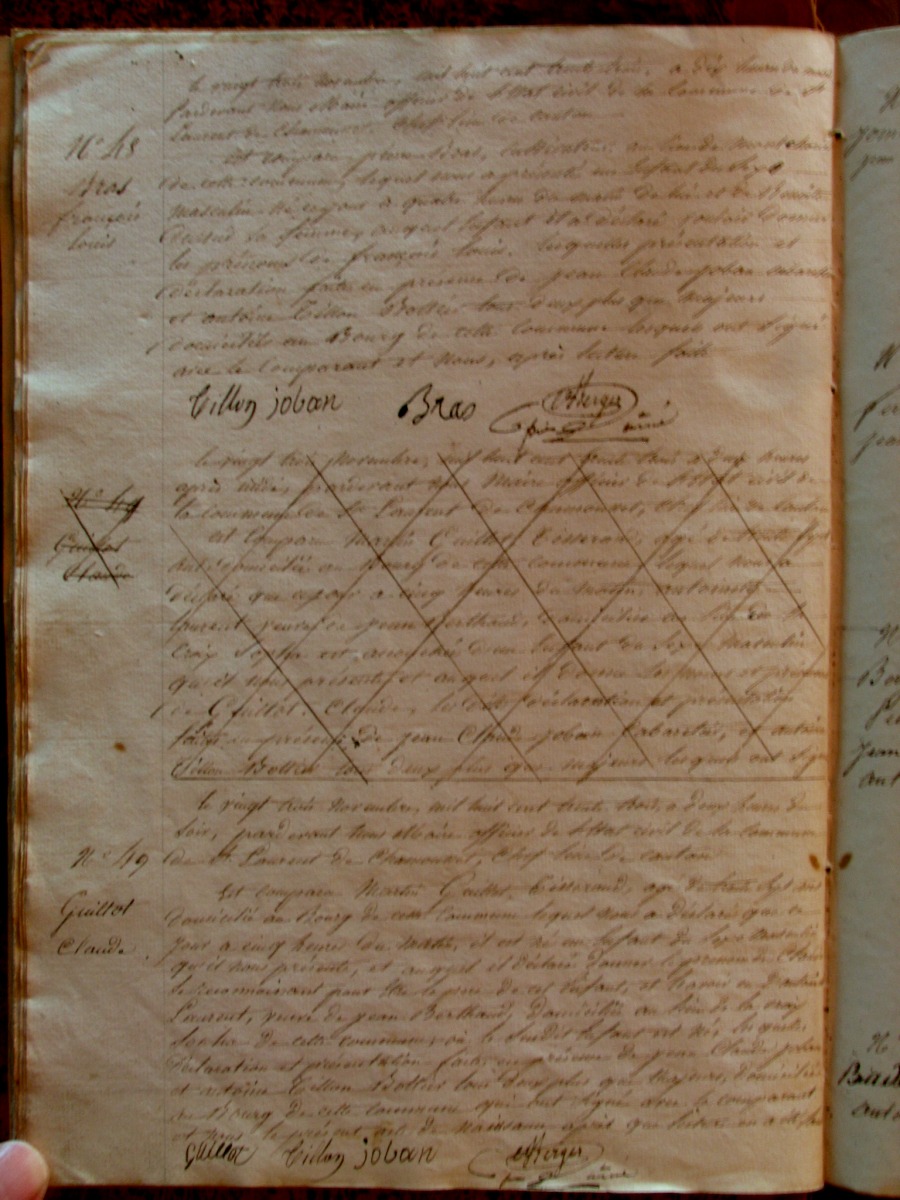 Le vingt trois novembre, mil huit cent trente trois, à dix heures du matin
Pardevant nous Maire officier de l'État civil de la Commune de St
N° 48
Laurent de Chamousset, Chef lieu de canton
Est comparu pierre Bras, Cultivateur, au lieu de
Bras
françois
louis
de cette commune, lequel nous a présenté un Enfant du Sexe
masculin né ce jour à quatre heures du matin de lui et de Benoite
sa femme, auquel Enfant il a déclaré vouloir donner
les prénoms de françois Louis. lesquelles présentation et
déclaration faites en présence de jean Claude joban cabaretier
et antoine Tillon Bottier tous deux plus que majeurs
domiciliés au Bourg de cette Commune lesquels ont signé
avec le Comparant et Nous, après lecture faite
Tillon joban Bras Berger
maire
Le vingt trois Novembre, mil huit cent trente trois à deux heures
après midi, pardevant nous Maire officier de l'État civil de
N° 49
la commune de St Laurent de Chamousset, Chef lieu de canton
est Comparu Martin Guillot Tisserand, agé de trente sept
Guillot
Claude
ans domicilié au Bourg de cette commune, lequel nous a
déclaré que ce jour à cinq heures du matin, antoinette
Laurent veuve de jean Berthaud, domiciliée au lieu de la
Croix Sopha est accouchée d'un Enfant du Sexe Masculin
qu'il nous présente et auquel il donne les noms et prénoms
de Guillot Claude, les dites déclaration et présentation
faites en présence de jean Claude joban Cabaretier, et antoine
Tillon Bottier tous deux plus que majeurs lesquels ont signé
Le vingt trois novembre, mil huit cent trente trois, à deux heures du
soir, pardevant Nous Maire officier de l'État civil de la commune
N° 49
de St Laurent de Chamousset, Chef lieu de canton
Est comparu Martin Guillot Tisserand, agé de trente sept ans
Guillot
domicilié au Bourg de cette Commune lequel nous a déclaré que ce
Claude
jour à cinq heures du matin, il est né un Enfant du Sexe masculin
qu'il nous présente, et auquel il déclare donner le prénom de Claude
se reconnaissant pour être le père de cet Enfant, et l'avoir eu d'antoinette
Laurent, veuve de jean Berthaud, domiciliée au lieu de la croix
Sopha de cette commune, où le susdit Enfant est né. lesquelles
déclaration et présentation faites en présence de jean Claude joban
et antoine Tillon Bottier tous deux plus que majeurs, domiciliés
au Bourg de cette commune qui ont signé avec le comparant
et nous le présent acte de naissance après que lecture en a été faite
Guillot Tillon joban Berger
maire